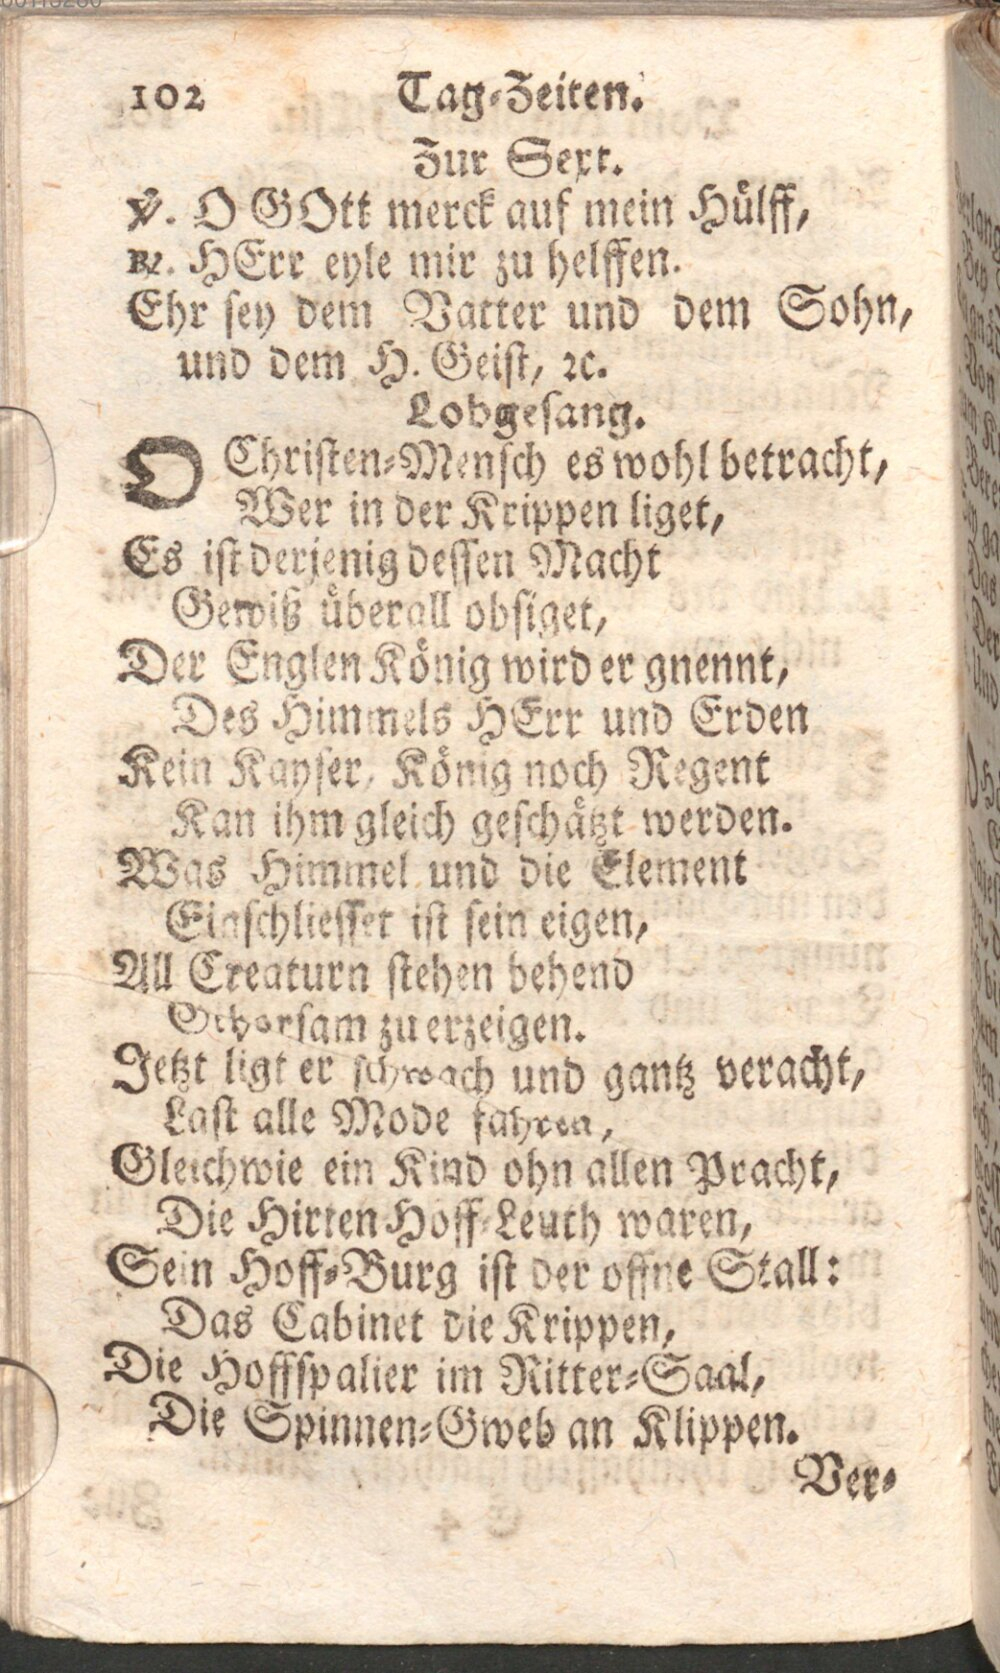 102 Tag-Zeiten.
Zur Sext.
℣. O GOtt merck auf mein Hülff,
℟. HErr eyle mir zu helffen.
Ehr sey dem Vatter und dem Sohn,
und dem H. Geist, ꝛc.
Lobgesang.
O Christen-Mensch es wohl betracht,
Wer in der Krippen liget,
Es ist derjenig dessen Macht
Gewiß überall obsiget,
Der Englen König wird er gnennt,
Des Himmels HErr und Erden
Kein Kayser, König noch Regent
Kan ihm gleich geschätzt werden.
Was Himmel und die Element
Einschliesset ist sein eigen,
All Creaturn stehen behend
Gehorsam zu erzeigen.
Jetzt ligt er schwach und gantz veracht,
Last alle Mode fahren,
Gleichwie ein Kind ohn allen Pracht,
Die Hirten Hoff-Leuth waren,
Sein Hoff-Burg ist der offne Stall:
Das Cabinet die Krippen,
Die Hoffspalier im Ritter-Saal,
Die Spinnen-Gweb an Klippen.
Ver-